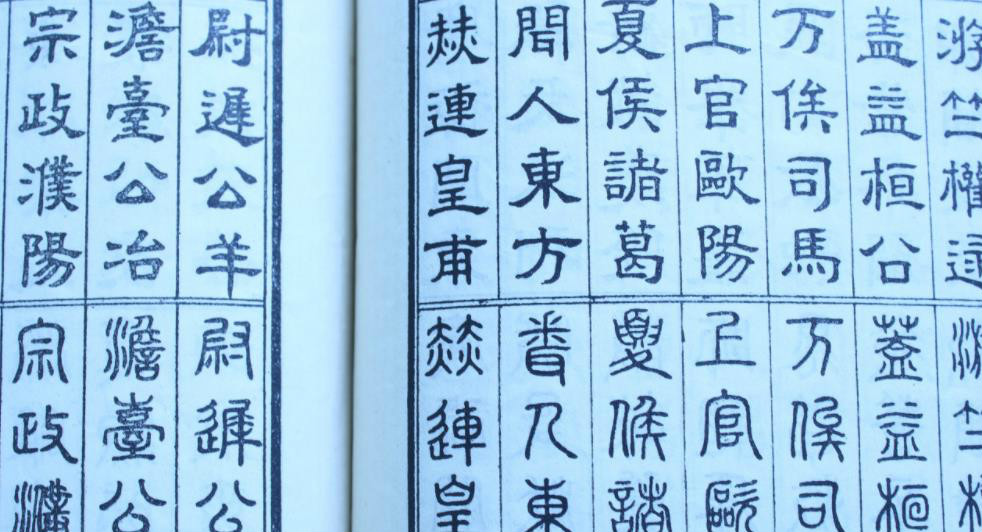 游竺權逯
盖益桓公
万俟司馬
上官歐陽
夏侯諸葛
聞人東方
赫連皇甫
尉遲公羊
澹臺公冶
宗政濮陽
游竺權
蓋益桓
万俟司
上官歐
夏侯諸
聞人東
赫連皇
尉遲公
澹臺公
宗政濮